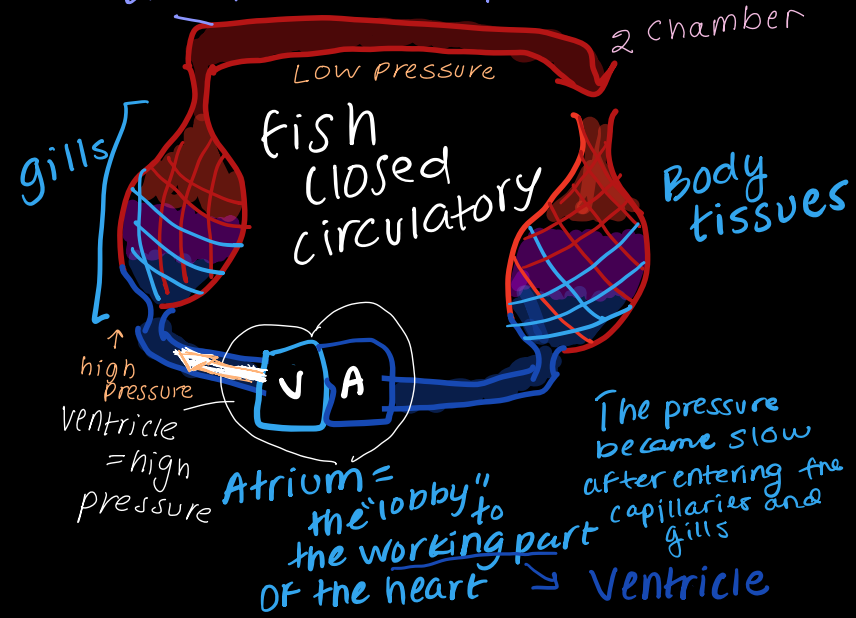 2 chamber
Low pressure
gills
fish
closed
circulatory
Body
tissues
high
pressure
ventricle
= high
pressure
V
A
Atrium =
the "lobby"
to
the working part
of the heart
Ventricle
The pressure
became slow
after entering the
capillaries and
gills